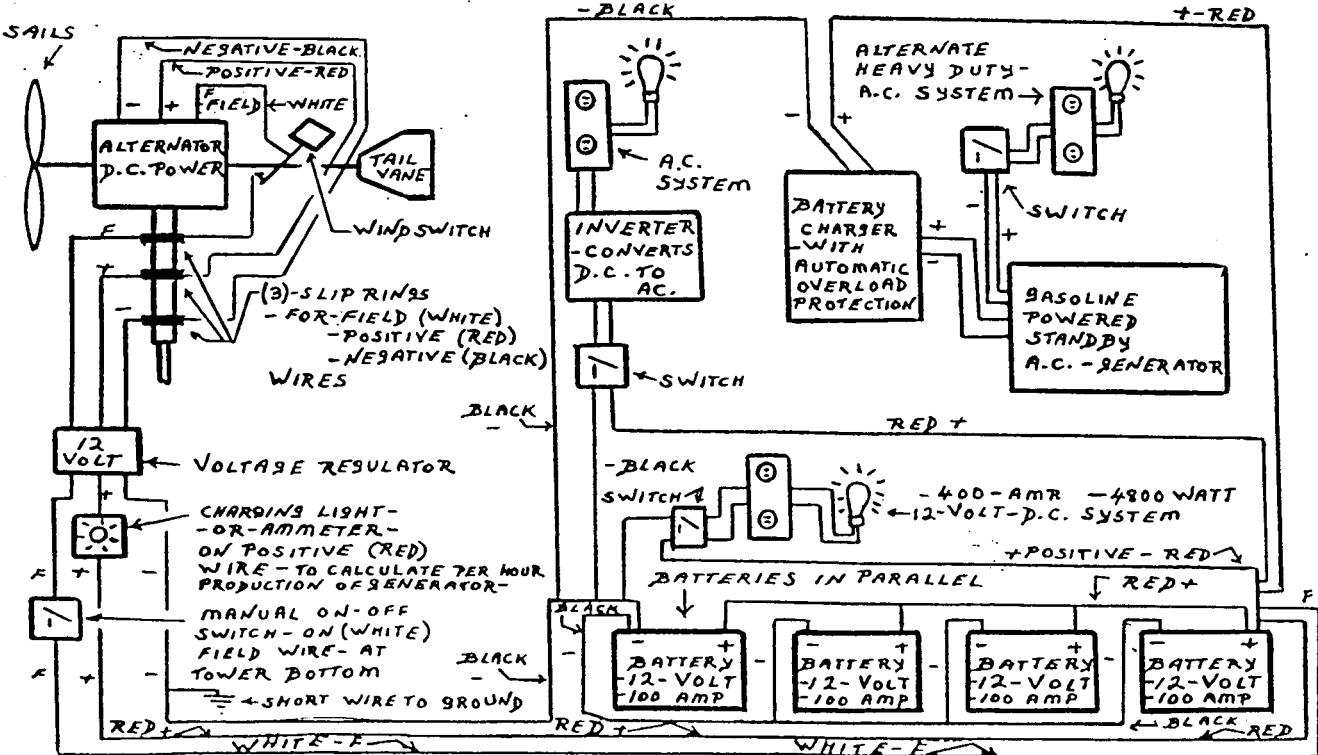 SAILS
NEGATIVE-BLACK
POSITIVE-RED
- + F
FIELD WHITE
ALTERNATOR
D.C. POWER
TAIL
VANE
WINDSWITCH
F
+
-
(3)-SLIP RINGS
-FOR-FIELD (WHITE)
-POSITIVE (RED)
-NEGATIVE (BLACK)
WIRES
12
VOLT
VOLTAGE REGULATOR
+
CHARGING LIGHT-
-OR-AMMETER-
ON POSITIVE (RED)
WIRE-TO CALCULATE PER HOUR
PRODUCTION OF GENERATOR-
F + -
MANUAL ON-OFF
SWITCH-ON (WHITE)
FIELD WIRE-AT
TOWER BOTTOM
F + -
SHORT WIRE TO GROUND
RED+
WHITE-F
-BLACK
+-RED
A.C.
SYSTEM
INVERTER
-CONVERTS
D.C. TO
AC.
SWITCH
BLACK
-
RED +
- +
BATTERY
CHARGER
-WITH
AUTOMATIC
OVERLOAD
PROTECTION
+
-
ALTERNATE
HEAVY DUTY-
A.C. SYSTEM
SWITCH
-
+
GASOLINE
POWERED
STANDBY
A.C.-GENERATOR
-BLACK
SWITCH
-400-AMP -4800 WATT
12-VOLT-D.C. SYSTEM
+POSITIVE-RED
BATTERIES IN PARALLEL
RED+
F
BLACK
-
BLACK
-
- +
BATTERY
-12-VOLT
-100 AMP
-
- +
BATTERY
-12-VOLT
-100 AMP
-
- +
BATTERY
-12-VOLT
-100 AMP
-
- +
BATTERY
-12-VOLT
-100 AMP
RED+
BLACK
RED
WHITE-F